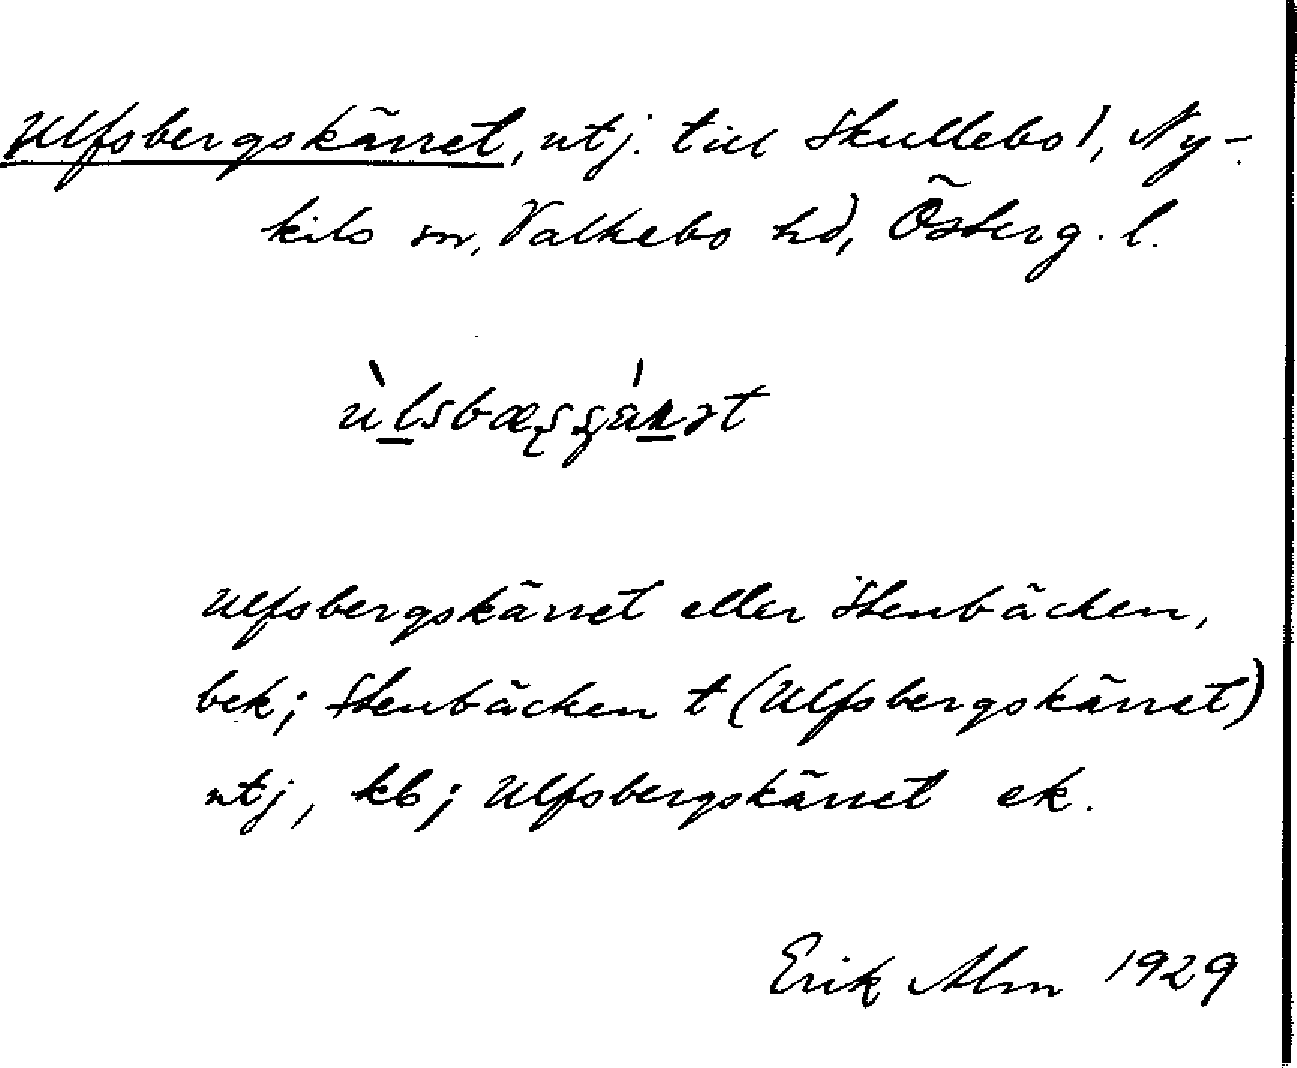 Ulfsbergskärret, utj. till Skullebo 1, Ny-
kils sn, Valkebo hd, Österg. l.
Ulfsbergskärret eller Stenbäcken,
bek; Stenbäcken t (Ulfsbergskärret)
utj, kb; Ulfsbergskärret ek.
Erik Alm 1929